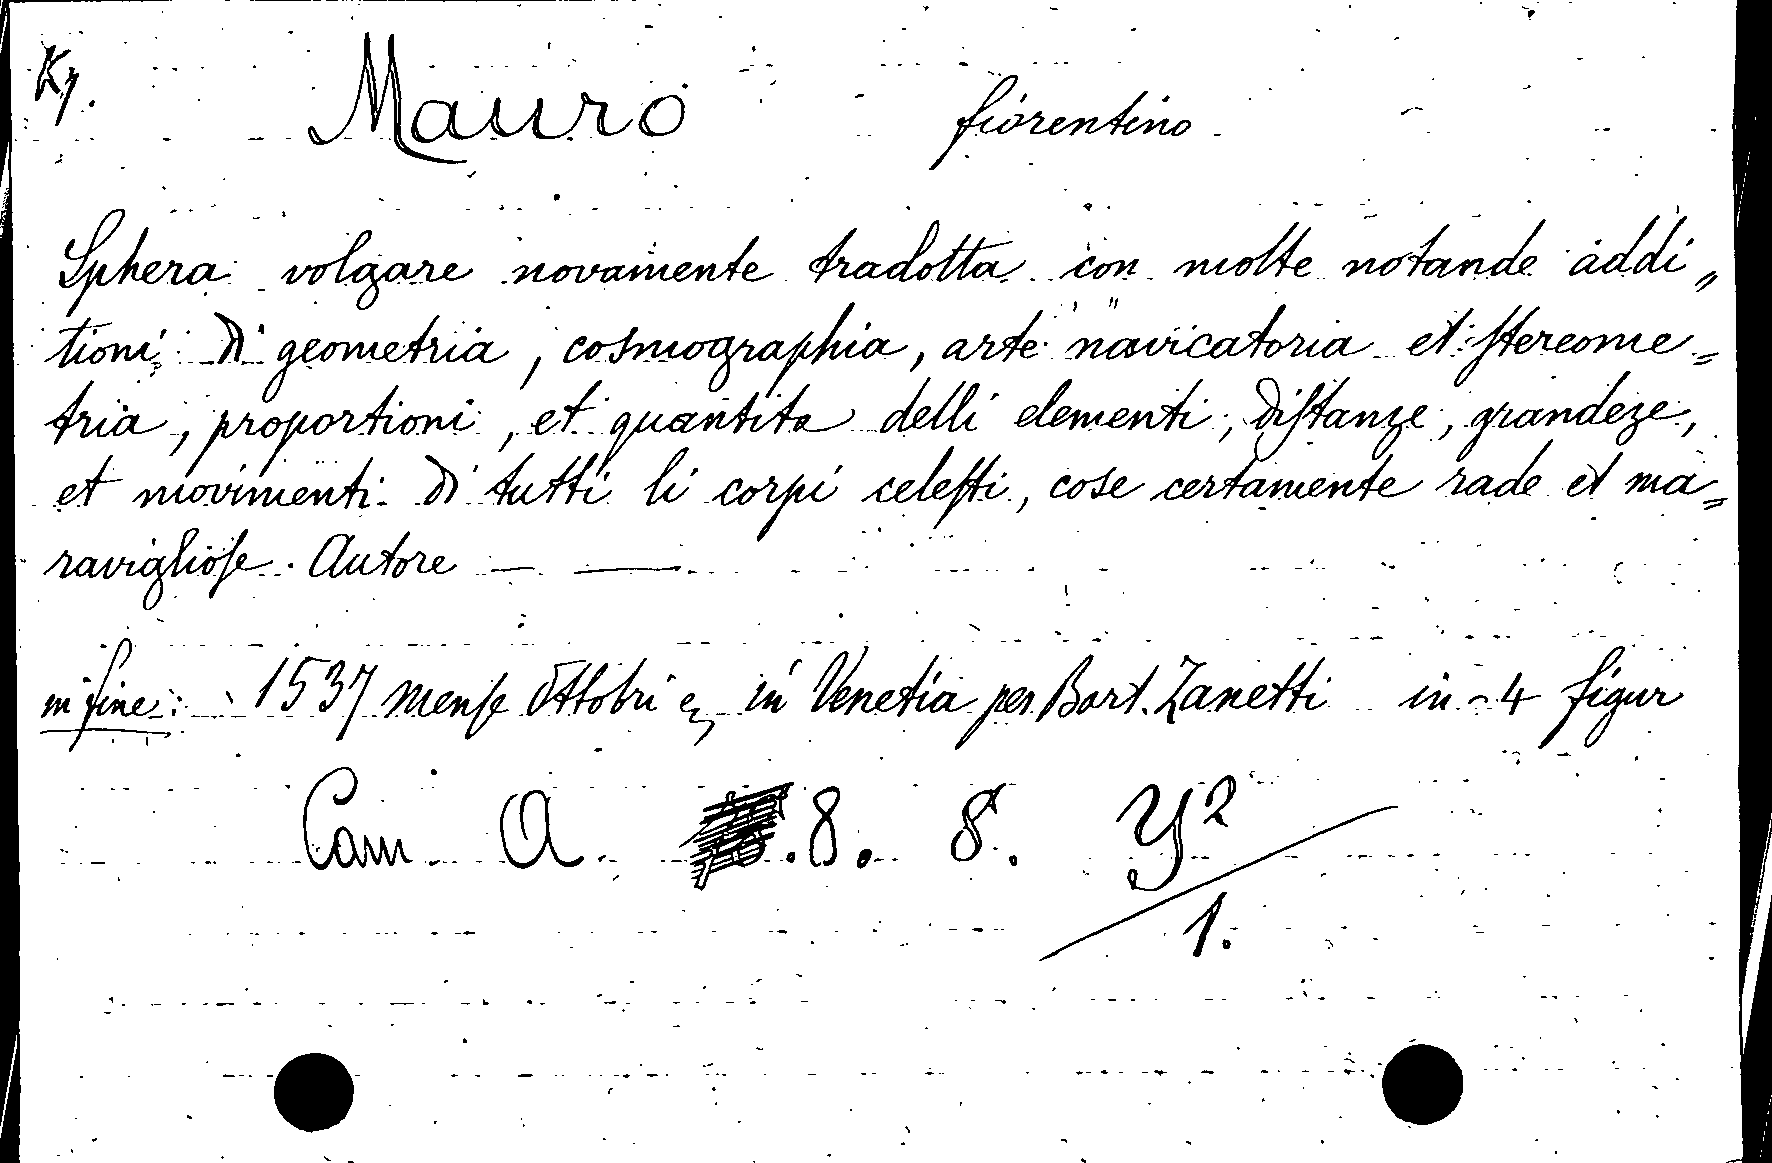 Ky.
Mauro fiorentino
Sphera volgare novamente tradotta con molte notande addi„
tioni di geometria, cosmographia, arte navicatoria et ſtereome=
tria, proportioni, et quantita delli elementi, diſtanze, grandeze,
et movimenti di tutti li corpi celeſti, cose certamente rade et ma=
raviglioſe. Autore — —
in fine: 1537 menſe Ottobri in Venetia per Bart. Zanetti in-4 figur
Cam A. .8. 8. Y²
1.